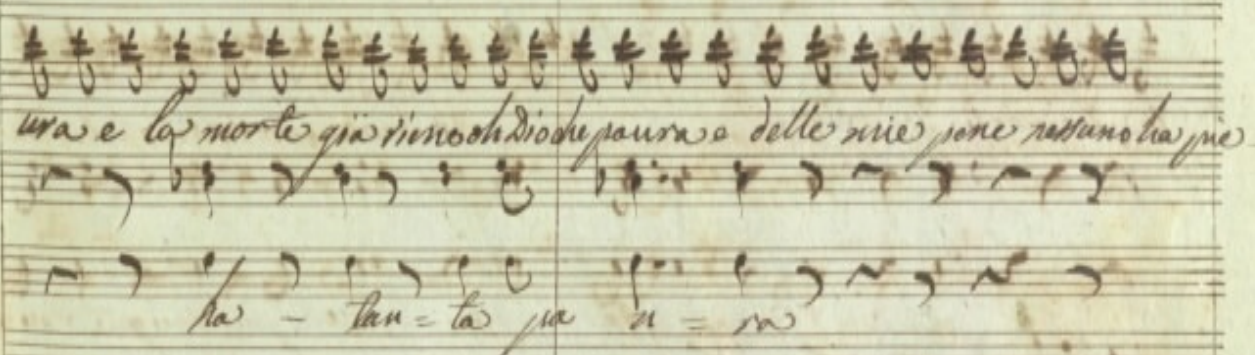 ura e la morte già vicino oh Dio che paura e delle mie pene nessuno ha pie
ha - tan = ta pa u = ra